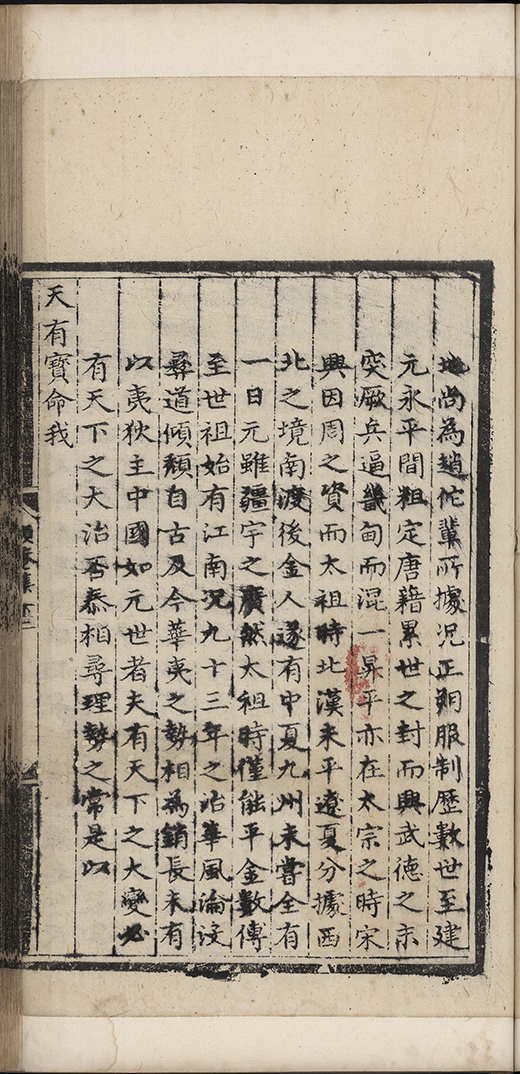 地尚為趙佗輩所據況正朔服制歷數世至建
元永平間粗定唐藉累世之封而興武德之末
突厥兵逼畿甸而混一昇平亦在太宗之時宋
興因周之資而太祖時北漢未平遼夏分據西
北之境南渡後金人遂有中夏九州未嘗全有
一日元雖疆宇之廣然太祖時僅能平金數傳
至世祖始有江南況九十三年之治華風淪沒
彛道傾頹自古及今華夷之勢相為銷長未有
以夷狄主中國如元世者夫有天下之大變必
有天下之大治否泰相尋理勢之常是以
天有寶命我